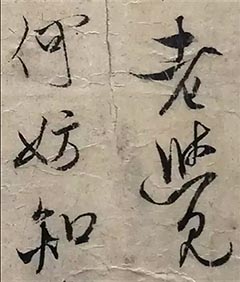 老覺
何妨知